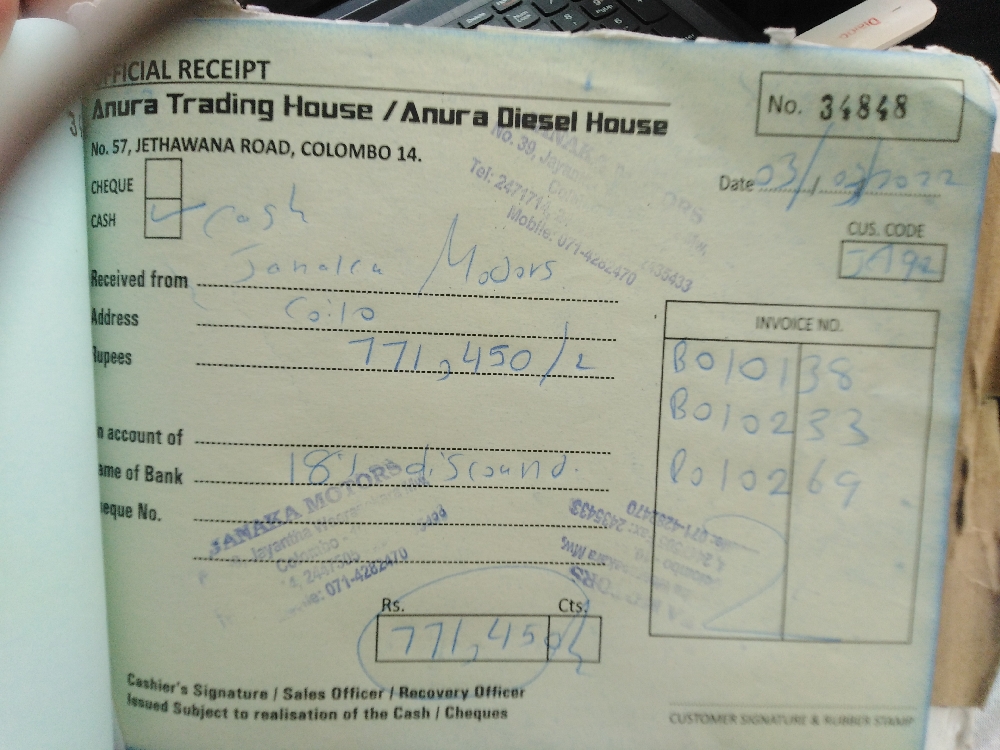 OFFICIAL RECEIPT
Anura Trading House / Anura Diesel House
No. 57, JETHAWANA ROAD, COLOMBO 14.
No. 34848
Date 03/03/2022
CHEQUE
CASH ✓ Cash
CUS. CODE
JA92
Received from Janaka Motors
Address Co:10
Rupees 771,450/=
INVOICE NO.
B010138
B010233
B010269
n account of
ame of Bank 18% discound.
heque No.
JANAKA MOTORS
Colombo
071-4282470
No. 39,
Tel: 2471
Mobile: 071-4282470
2435433
Fax: 2435433
071-4282470
Rs. Cts.
771,450/=
Cashier's Signature / Sales Officer / Recovery Officer
Issued Subject to realisation of the Cash / Cheques
CUSTOMER SIGNATURE & RUBBER STAMP